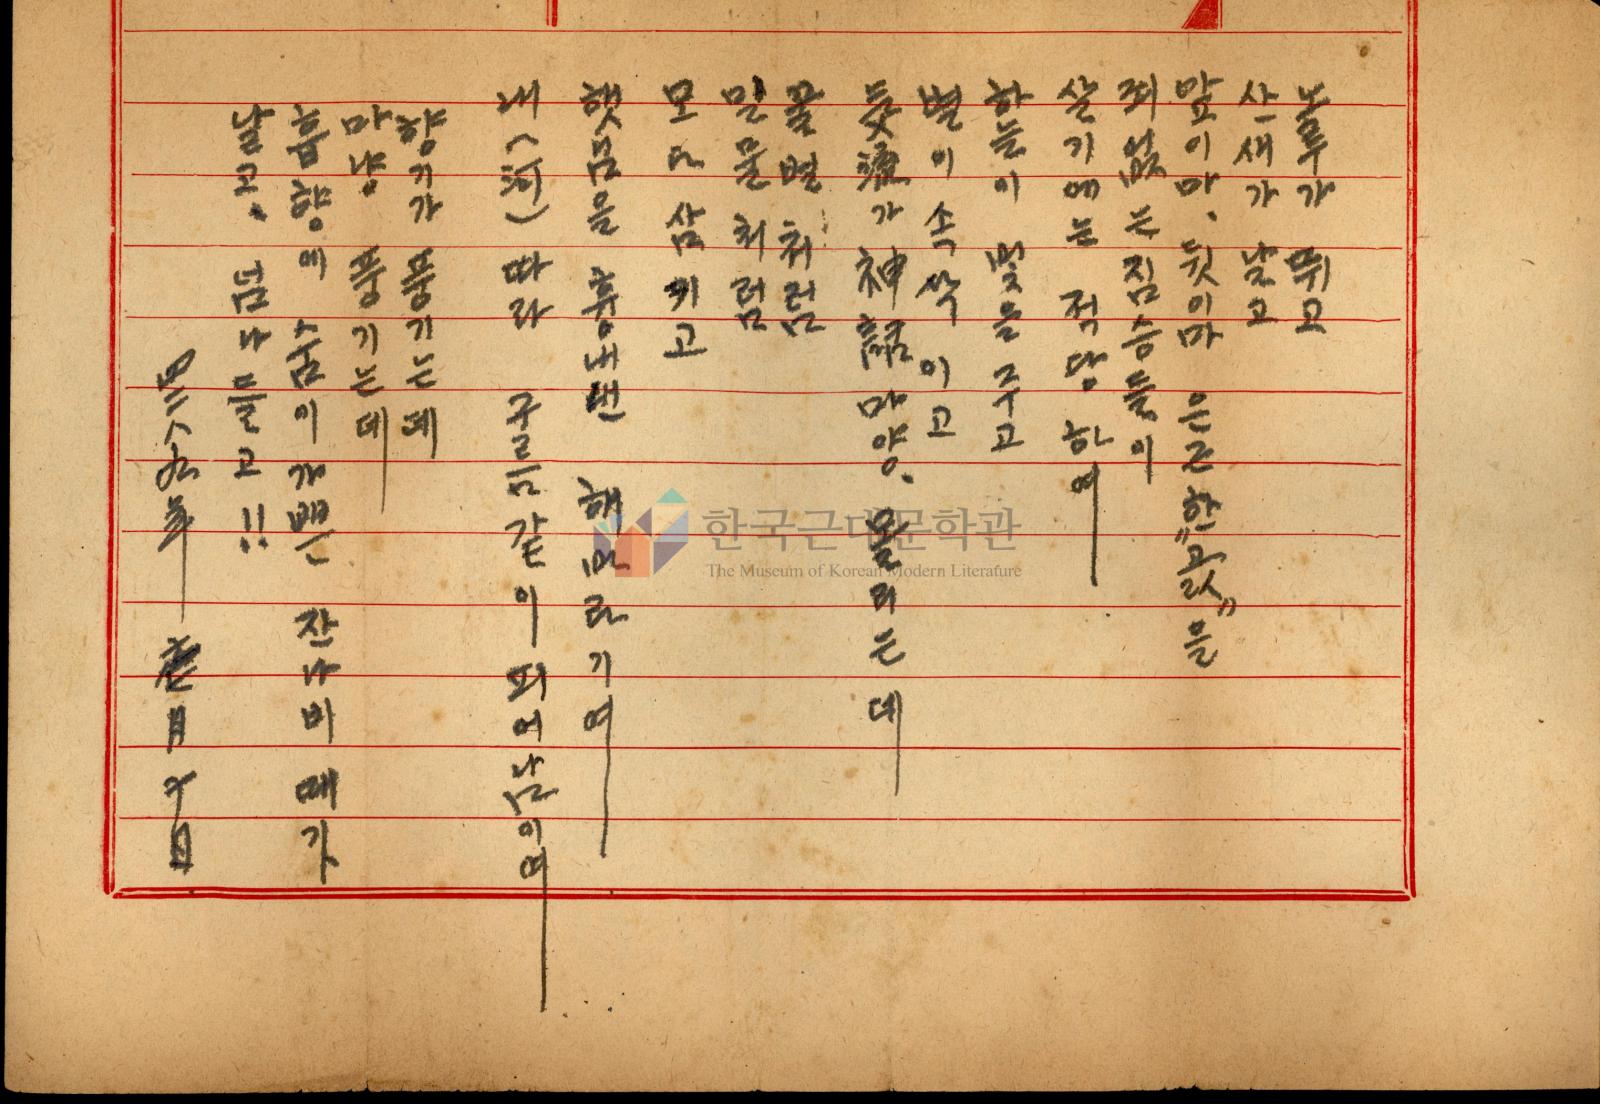 노루가 뛰고
산새가 날고
앞이마. 뒷이마 은근한 "곬"을
죄없는 짐승들이
살기에는 적당하여—
하늘이 빛을 주고
별이 속삭이고
神話마양. 올리는데—
꿀벌처럼
밀물처럼
모다 삼키고
햇님을 흉내낸 해바라기여—
내 따라 구름같이 피어남이여—
향기가 풍기는데
마냥 풍기는데—
흠향에 숨이 가쁜 잔나비 떼가
날고. 넘나들고!!
한국근대문학관
The Museum of Korean Modern Literature